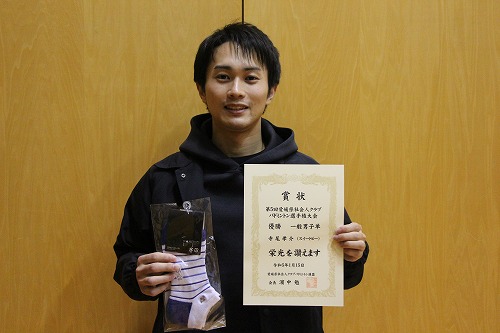 賞状
第5回愛媛県社会人クラブ
バドミントン選手権大会
優勝 一般男子単
寺尾孝介（スイートピー）
栄光を讃えます
令和5年1月15日
愛媛県社会人クラブバドミントン連盟
会長 濱中勉